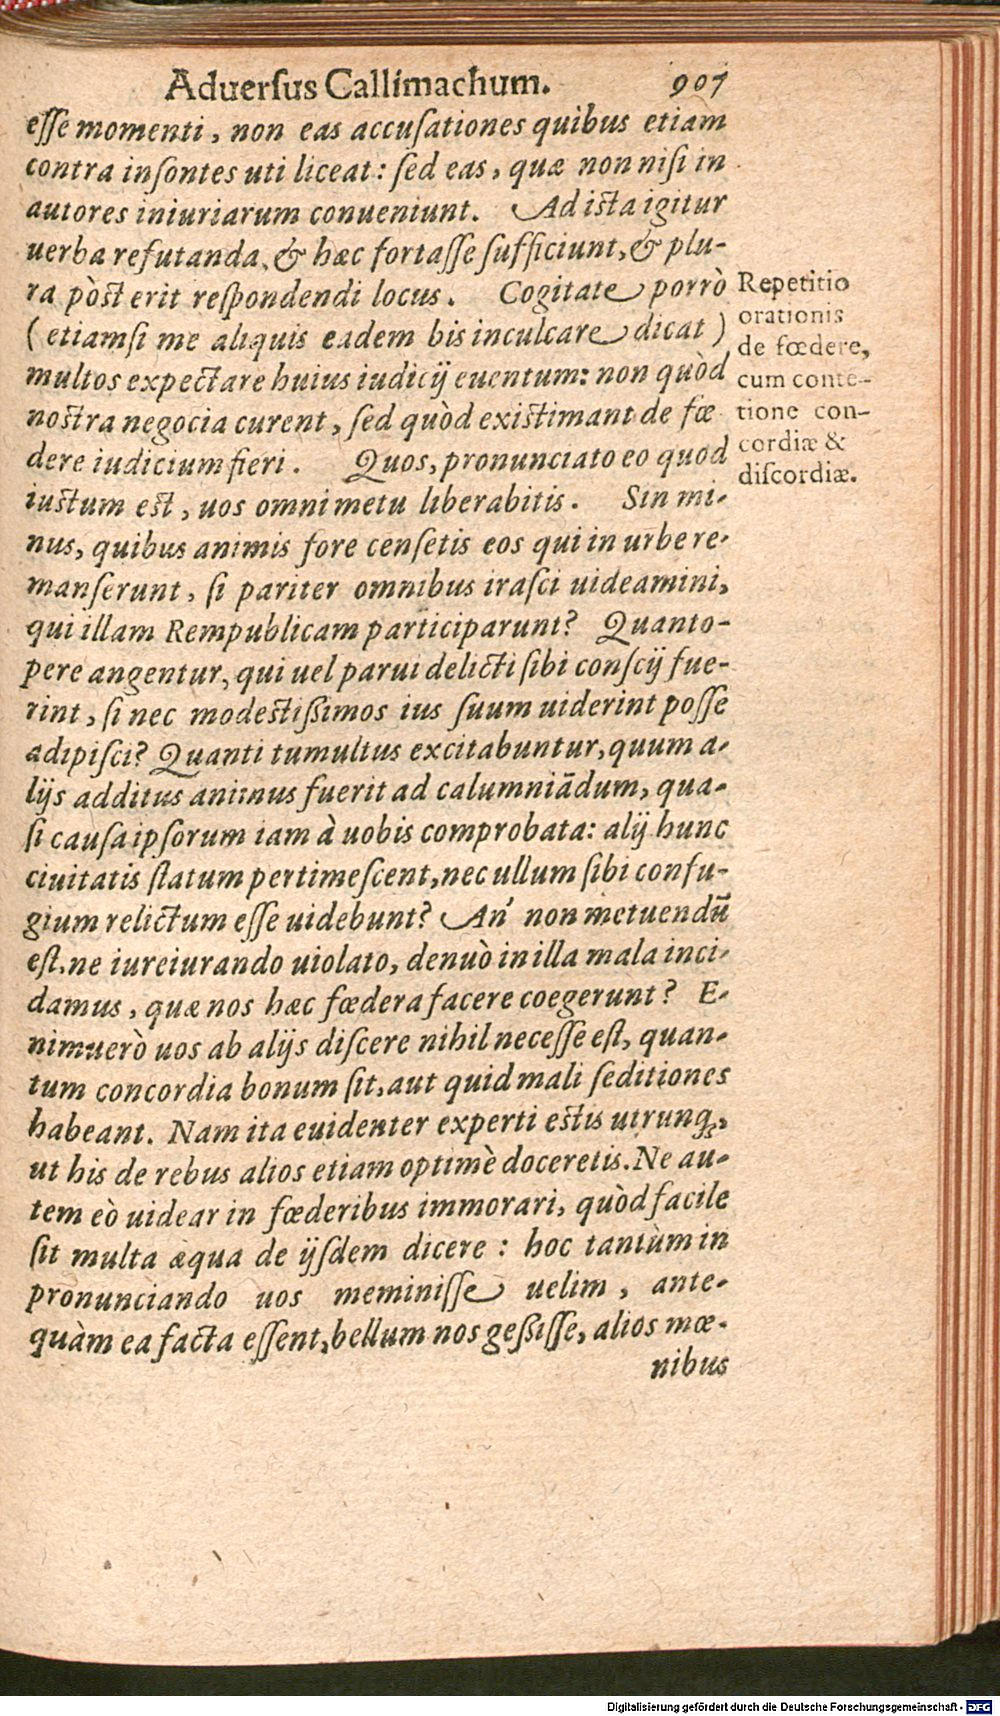 Aduerſus Callimachum. 907
eſſe momenti, non eas accuſationes quibus etiam
contra inſontes uti liceat: ſed eas, quæ non niſi in
autores iniuriarum conueniunt. Ad iſta igitur
uerba refutanda, & hæc fortaſſe ſufficiunt, & plu-
ra pòſt erit reſpondendi locus. Cogitate porrò
(etiamſi me aliquis eadem bis inculcare dicat)
multos expectare huius iudicij euentum: non quòd
noſtra negocia curent, ſed quòd exiſtimant de fœ
dere iudicium fieri. Quos, pronunciato eo quod
iuſtum eſt, uos omni metu liberabitis. Sin mi-
nus, quibus animis fore cenſetis eos qui in urbe re-
manſerunt, ſi pariter omnibus iraſci uideamini,
qui illam Rempublicam participarunt? Quanto-
pere angentur, qui uel parui delicti ſibi conſcij fue-
rint, ſi nec modeſtiſsimos ius ſuum uiderint poſſe
adipiſci? Quanti tumultus excitabuntur, quum a-
lijs additus animus fuerit ad calumniādum, qua-
ſi cauſa ipſorum iam à uobis comprobata: alij hunc
ciuitatis ſtatum pertimeſcent, nec ullum ſibi confu-
gium relictum eſſe uidebunt? An' non metuendū
eſt, ne iureiurando uiolato, denuò in illa mala inci-
damus, quæ nos hæc fœdera facere coegerunt? E-
nimuerò uos ab alijs diſcere nihil neceſſe eſt, quan-
tum concordia bonum ſit, aut quid mali ſeditiones
habeant. Nam ita euidenter experti eſtis utrunq;,
ut his de rebus alios etiam optimè doceretis. Ne au-
tem eò uidear in fœderibus immorari, quòd facile
ſit multa æqua de ijſdem dicere: hoc tantùm in
pronunciando uos meminiſſe uelim, ante-
quàm ea facta eſſent, bellum nos geſsiſſe, alios mœ-
nibus
Repetitio
orationis
de fœdere,
cum conte-
tione con-
cordiæ &
diſcordiæ.
Digitalisierung gefördert durch die Deutsche Forschungsgemeinschaft - DFG